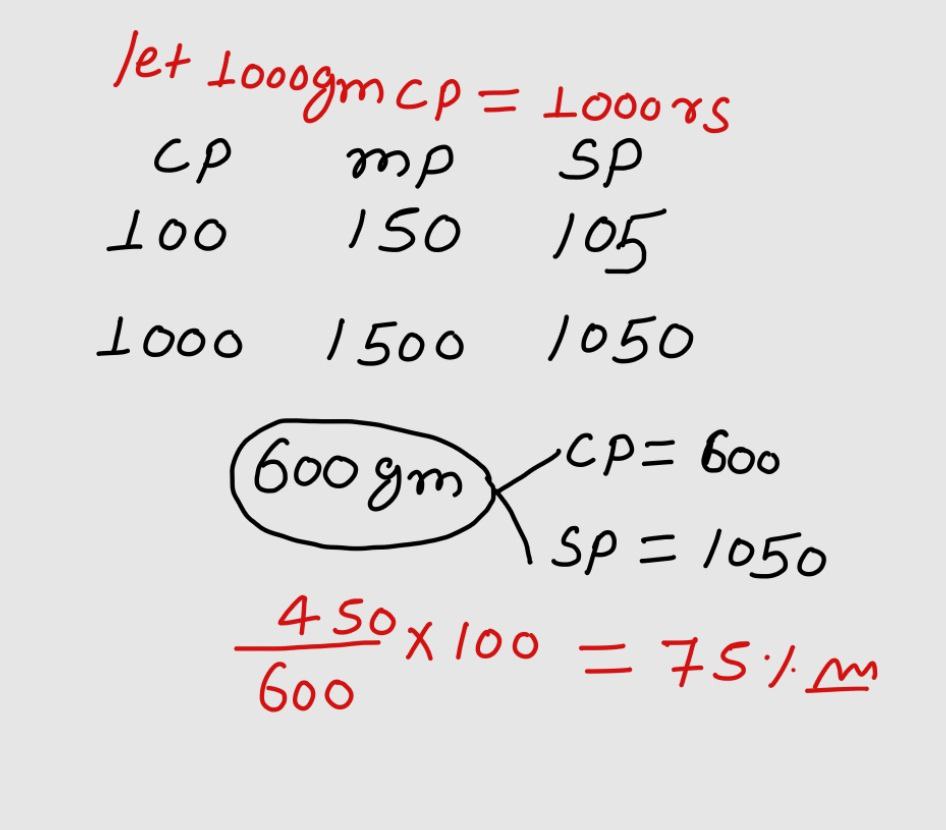 let 1000gm CP = 1000 rs
CP mp SP
100 150 105
1000 1500 1050
600 gm CP = 600
SP = 1050
450/600 × 100 = 75%